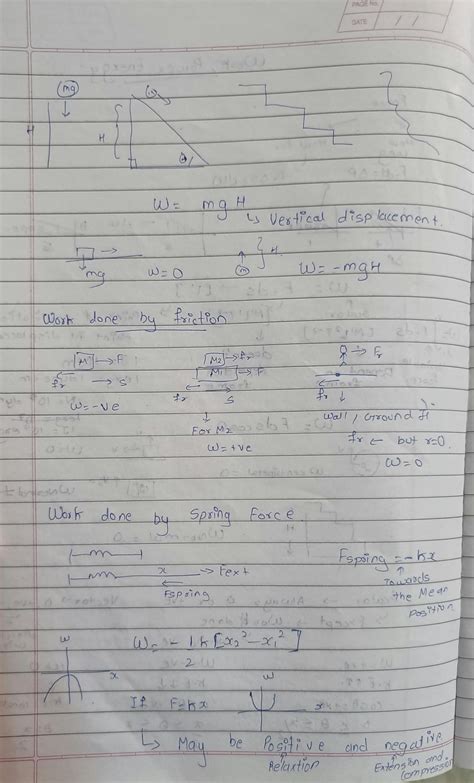 PAGE No.
DATE / /
mg
H
H
W = mgH
↳ Vertical displacement.
mg
W=0
m
H
W = -mgH
Work done by friction
M → F
fr ← → S
W = -ve
M2 → fr
M1 → F
fr ← → S
↓
For M2
W = +ve
→ Fr
fr ↓
Wall, Ground
fr ← but r=0.
W=0
Work done by Spring Force
x → Fext
Fspring
Fspring = -kx
Towards
the Mean
Position
W = -1/2 k [x2² - x1²]
w
x
If F=kx
w
↳ May be Positive and negative
Relaxtion
Extension and
compression